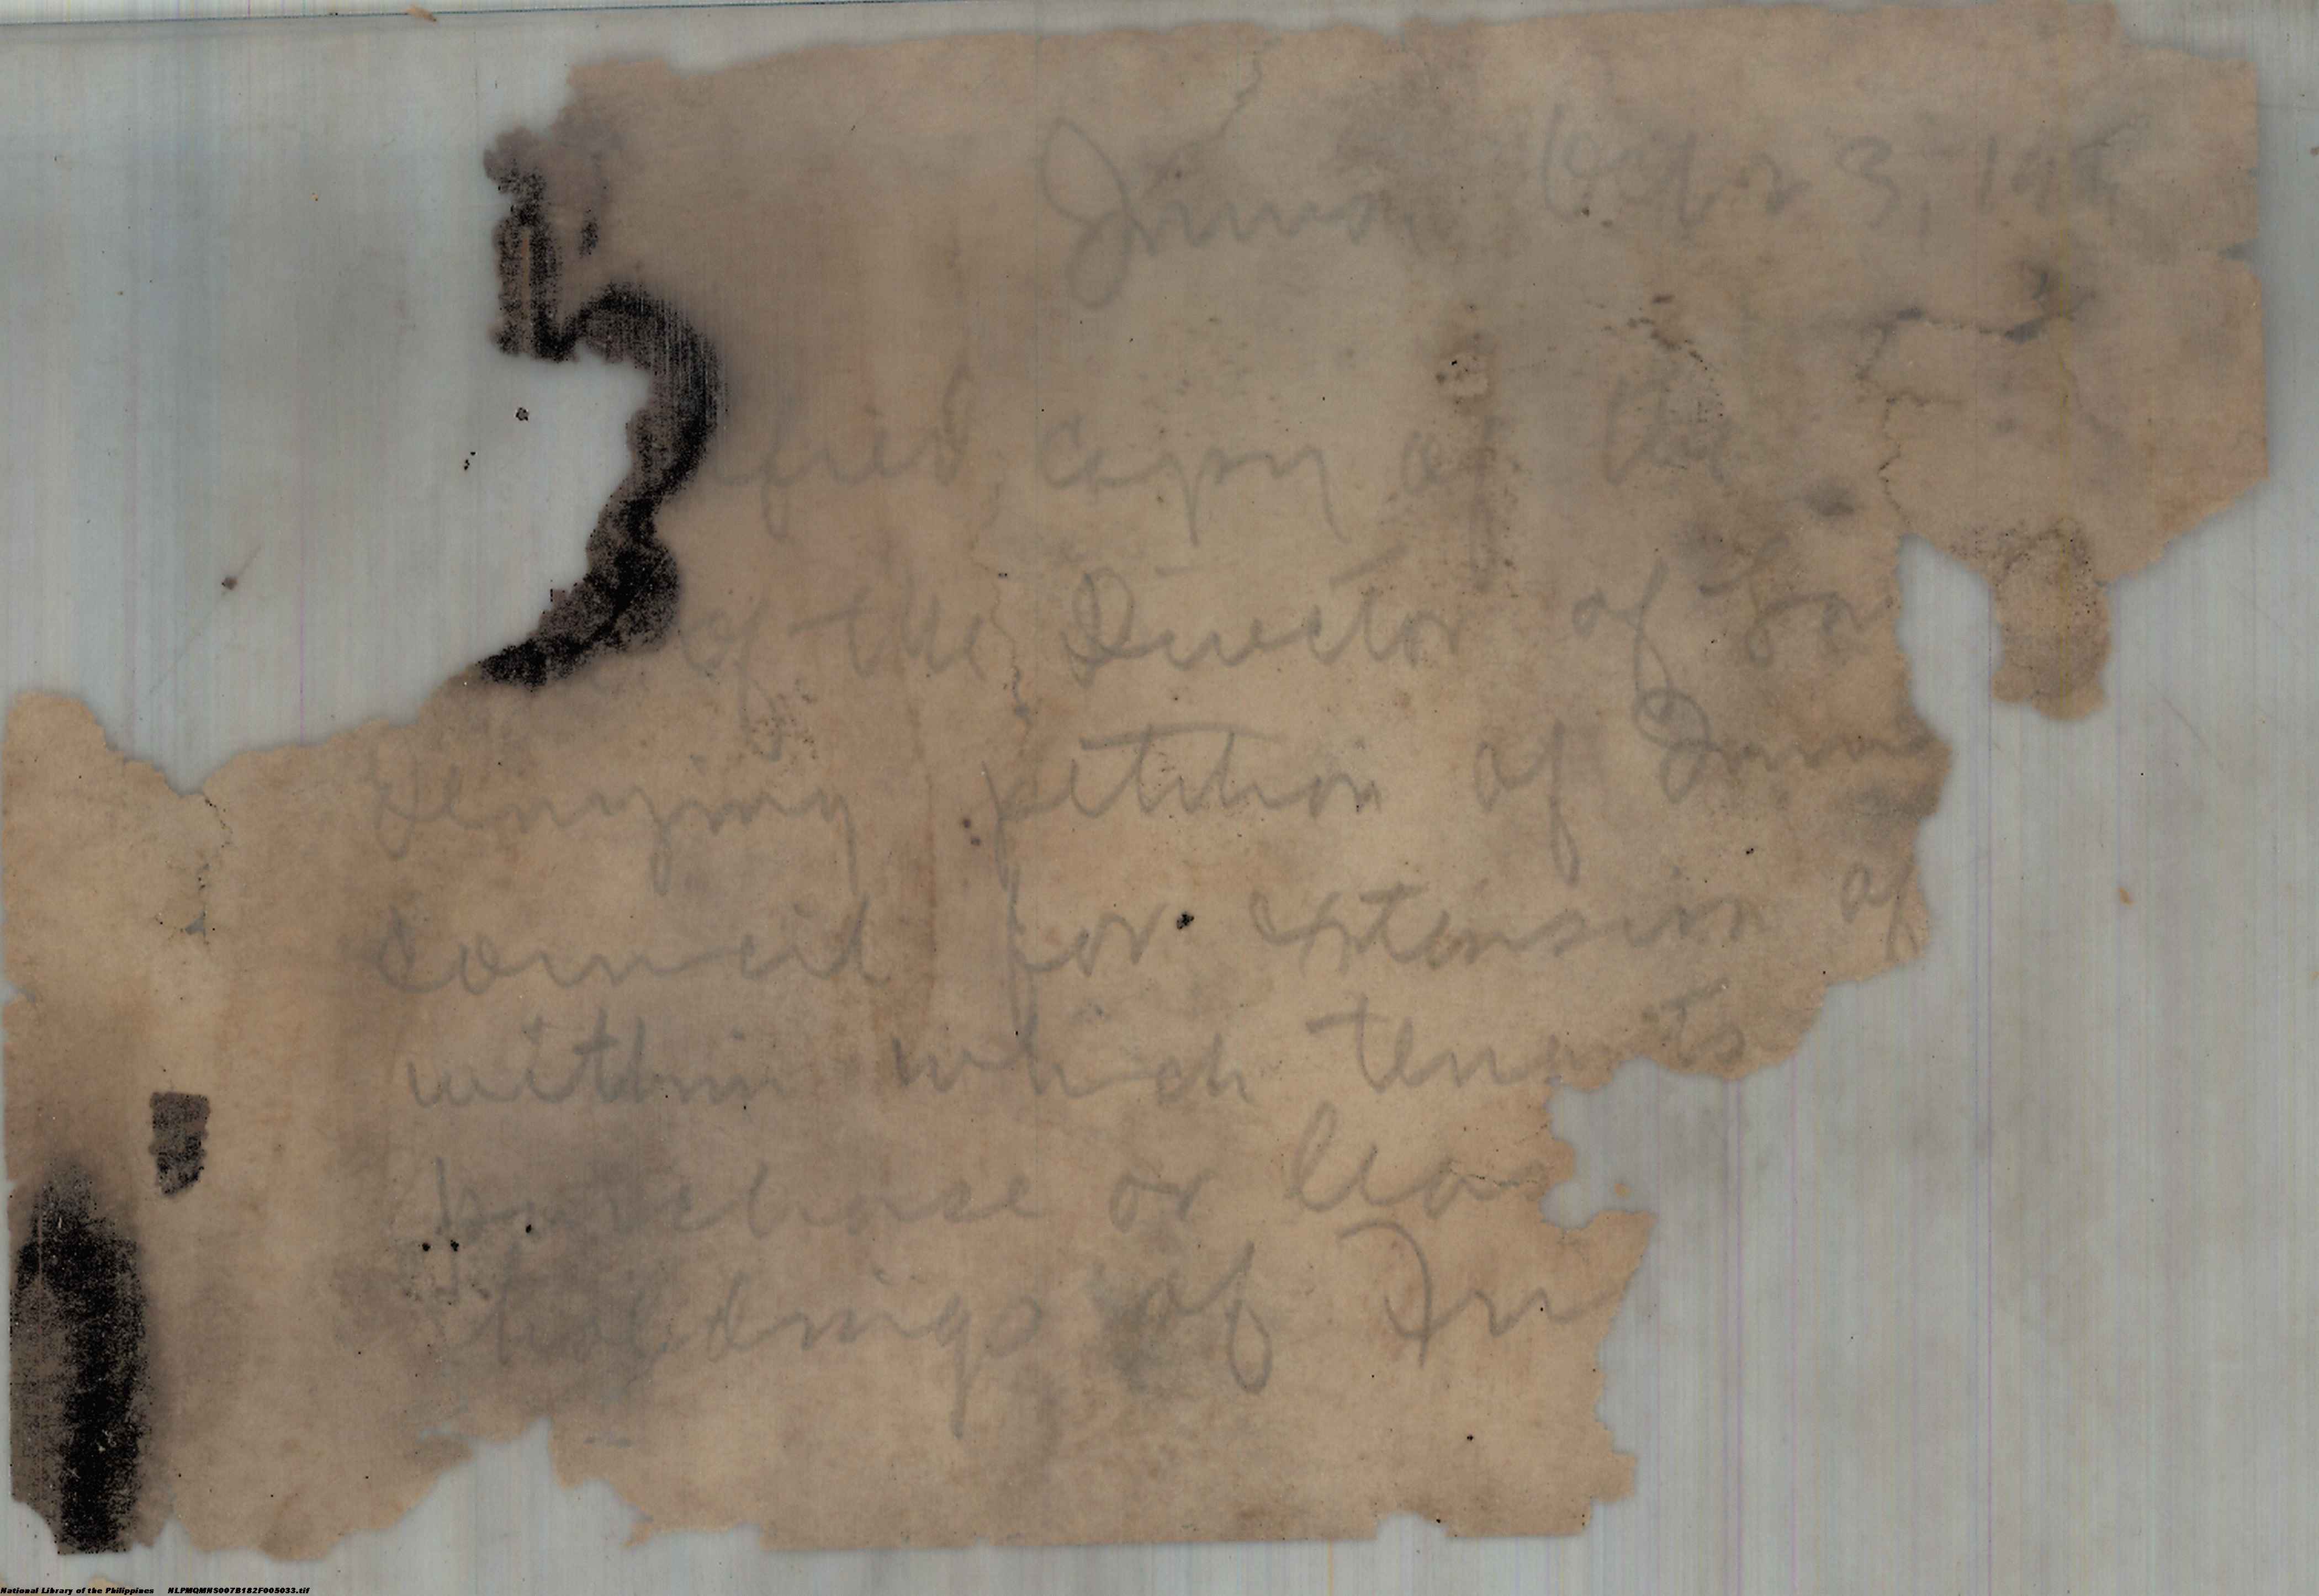 Imus
3, 19
ified copy of the
of the Director of La
denying petition of Imus
council for extension of
within which tenants
purchase or leas
holdings of Im
National Library of the Philippines NLPMQMNS007B182F005033.tif